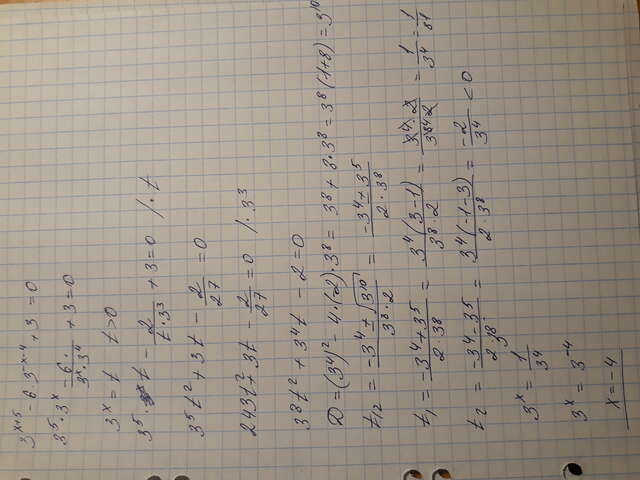 3^{x+5} - 6·3^{-x-4} + 3 = 0
3^5·3^x \frac{-6·}{3^x·3^4} + 3 = 0
3^x = t   t>0
3^5· t - \frac{2}{t·3^3} + 3 = 0  /·t
3^5t^2 + 3t - \frac{2}{27} = 0
243t^2 + 3t - \frac{2}{27} = 0  /·3^3
3^8t^2 + 3^4t - 2 = 0
D = (3^4)^2 - 4·(-2)·3^8 = 3^8 + 8·3^8 = 3^8(1+8) = 3^{10}
t_{12} = \frac{-3^4 ± \sqrt{3^{10}}}{3^8·2} = \frac{-3^4 ± 3^5}{2·3^8}
t_1 = \frac{-3^4+3^5}{2·3^8} = \frac{3^4(3-1)}{3^8·2} = \frac{3^4·2}{3^{84}·2} = \frac{1}{3^4} = \frac{1}{81}
t_2 = \frac{-3^4-3^5}{2·3^8} = \frac{3^4(-1-3)}{2·3^8} = \frac{-2}{3^4} < 0
3^x = \frac{1}{3^4}
3^x = 3^{-4}
x = -4